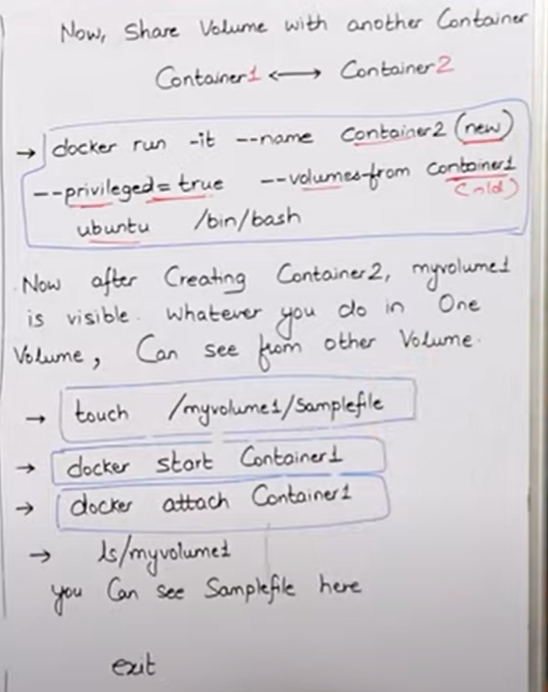 Now, Share Volume with another Container
Container1 ⟷ Container2
→ docker run -it --name Container2 (new)
--privileged=true --volumes-from Container1
(old)
ubuntu /bin/bash
Now after Creating Container2, myvolume1
is visible. Whatever you do in One
Volume, Can see from other Volume.
→ touch /myvolume1/Samplefile
→ docker start Container1
→ docker attach Container1
→ ls/myvolume1
you Can see Samplefile here
exit